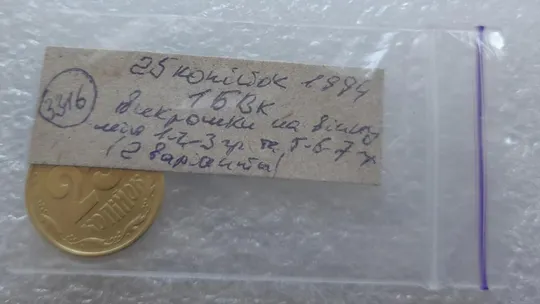 25 копійок 1994
1БВк
3316
викрошки на вінку
між 1-2-3 гр та 5-6-7 гр
(2 варіанти)
25
КОПІЙОК